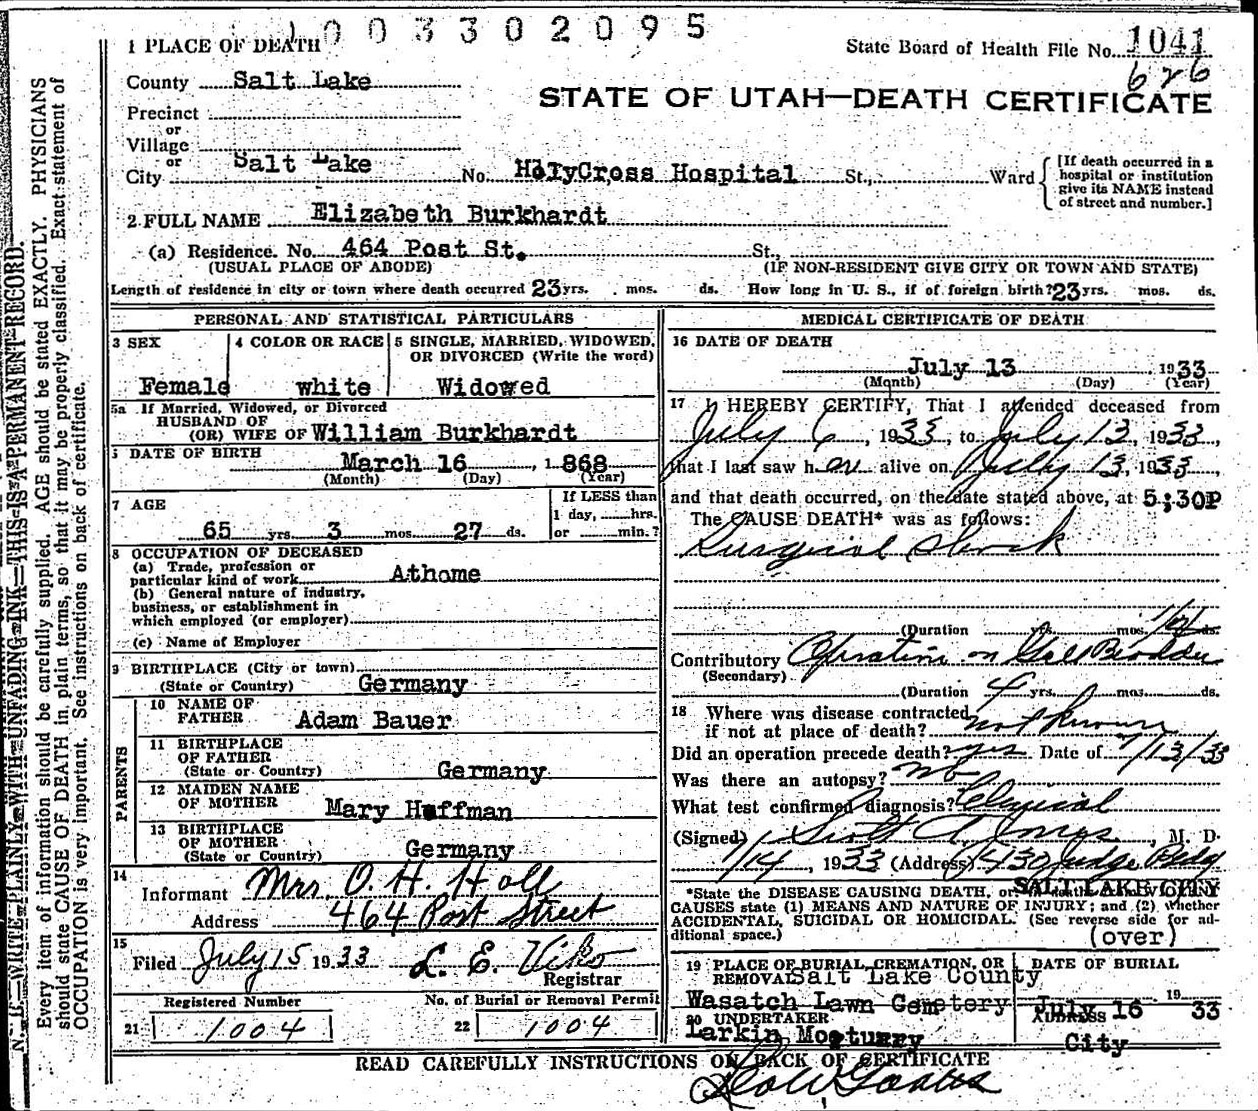 1003302095
1 PLACE OF DEATH
State Board of Health File No. 1041
626
County Salt Lake
STATE OF UTAH—DEATH CERTIFICATE
Precinct
or
Village
or
City Salt Lake No. HolyCross Hospital St., Ward
[If death occurred in a
hospital or institution
give its NAME instead
of street and number.]
2 FULL NAME Elizabeth Burkhardt
(a) Residence. No. 464 Post St. St.,
(USUAL PLACE OF ABODE) (IF NON-RESIDENT GIVE CITY OR TOWN AND STATE)
Length of residence in city or town where death occurred 23 yrs. mos. ds. How long in U. S., if of foreign birth? 23 yrs. mos. ds.
PERSONAL AND STATISTICAL PARTICULARS
3 SEX 4 COLOR OR RACE 5 SINGLE, MARRIED, WIDOWED,
OR DIVORCED (Write the word)
Female white Widowed
5a If Married, Widowed, or Divorced
HUSBAND OF
(OR) WIFE OF William Burkhardt
6 DATE OF BIRTH March 16, 1868
(Month) (Day) (Year)
7 AGE
If LESS than
1 day, hrs.
or min.?
65 yrs. 3 mos. 27 ds.
8 OCCUPATION OF DECEASED
(a) Trade, profession or
particular kind of work Athome
(b) General nature of industry,
business, or establishment in
which employed (or employer)
(c) Name of Employer
9 BIRTHPLACE (City or town)
(State or Country) Germany
PARENTS
10 NAME OF
FATHER Adam Bauer
11 BIRTHPLACE
OF FATHER
(State or Country) Germany
12 MAIDEN NAME
OF MOTHER Mary Huffman
13 BIRTHPLACE
OF MOTHER
(State or Country) Germany
14
Informant Mrs. O. H. Holl
Address 464 Post Street
15
Filed July 15 1933 L. E. Viko
Registrar
Registered Number No. of Burial or Removal Permit
21 1004 22 1004
MEDICAL CERTIFICATE OF DEATH
16 DATE OF DEATH
July 13 1933
(Month) (Day) (Year)
17 I HEREBY CERTIFY, That I attended deceased from
July 6, 1933, to July 13, 1933,
that I last saw her alive on July 13, 1933,
and that death occurred, on the date stated above, at 5:30P
The CAUSE DEATH* was as follows:
Surgical Shock
(Duration yrs. mos. ds.
Contributory Operation on Gall Bladder
(Secondary)
(Duration 4 yrs. mos. ds.
18 Where was disease contracted
if not at place of death? not known
Did an operation precede death? yes Date of 7/13/33
Was there an autopsy? no
What test confirmed diagnosis? Clinical
(Signed) Scott A Jones, M. D.
7/14, 1933 (Address) 430 Judge Bldg
SALT LAKE CITY
*State the DISEASE CAUSING DEATH, or
CAUSES state (1) MEANS AND NATURE OF INJURY; and (2) whether
ACCIDENTAL, SUICIDAL OR HOMICIDAL. (See reverse side for ad-
ditional space.)
(over)
19 PLACE OF BURIAL, CREMATION, OR DATE OF BURIAL
REMOVAL Salt Lake County
Wasatch Lawn Cemetery July 16 1933
20 UNDERTAKER ADDRESS
Larkin Mortuary City
READ CAREFULLY INSTRUCTIONS ON BACK OF CERTIFICATE
N. B.—WRITE PLAINLY WITH UNFADING INK—THIS IS A PERMANENT RECORD.
Every item of information should be carefully supplied. AGE should be stated EXACTLY. PHYSICIANS
should state CAUSE OF DEATH in plain terms, so that it may be properly classified. Exact statement of
OCCUPATION is very important. See instructions on back of certificate.